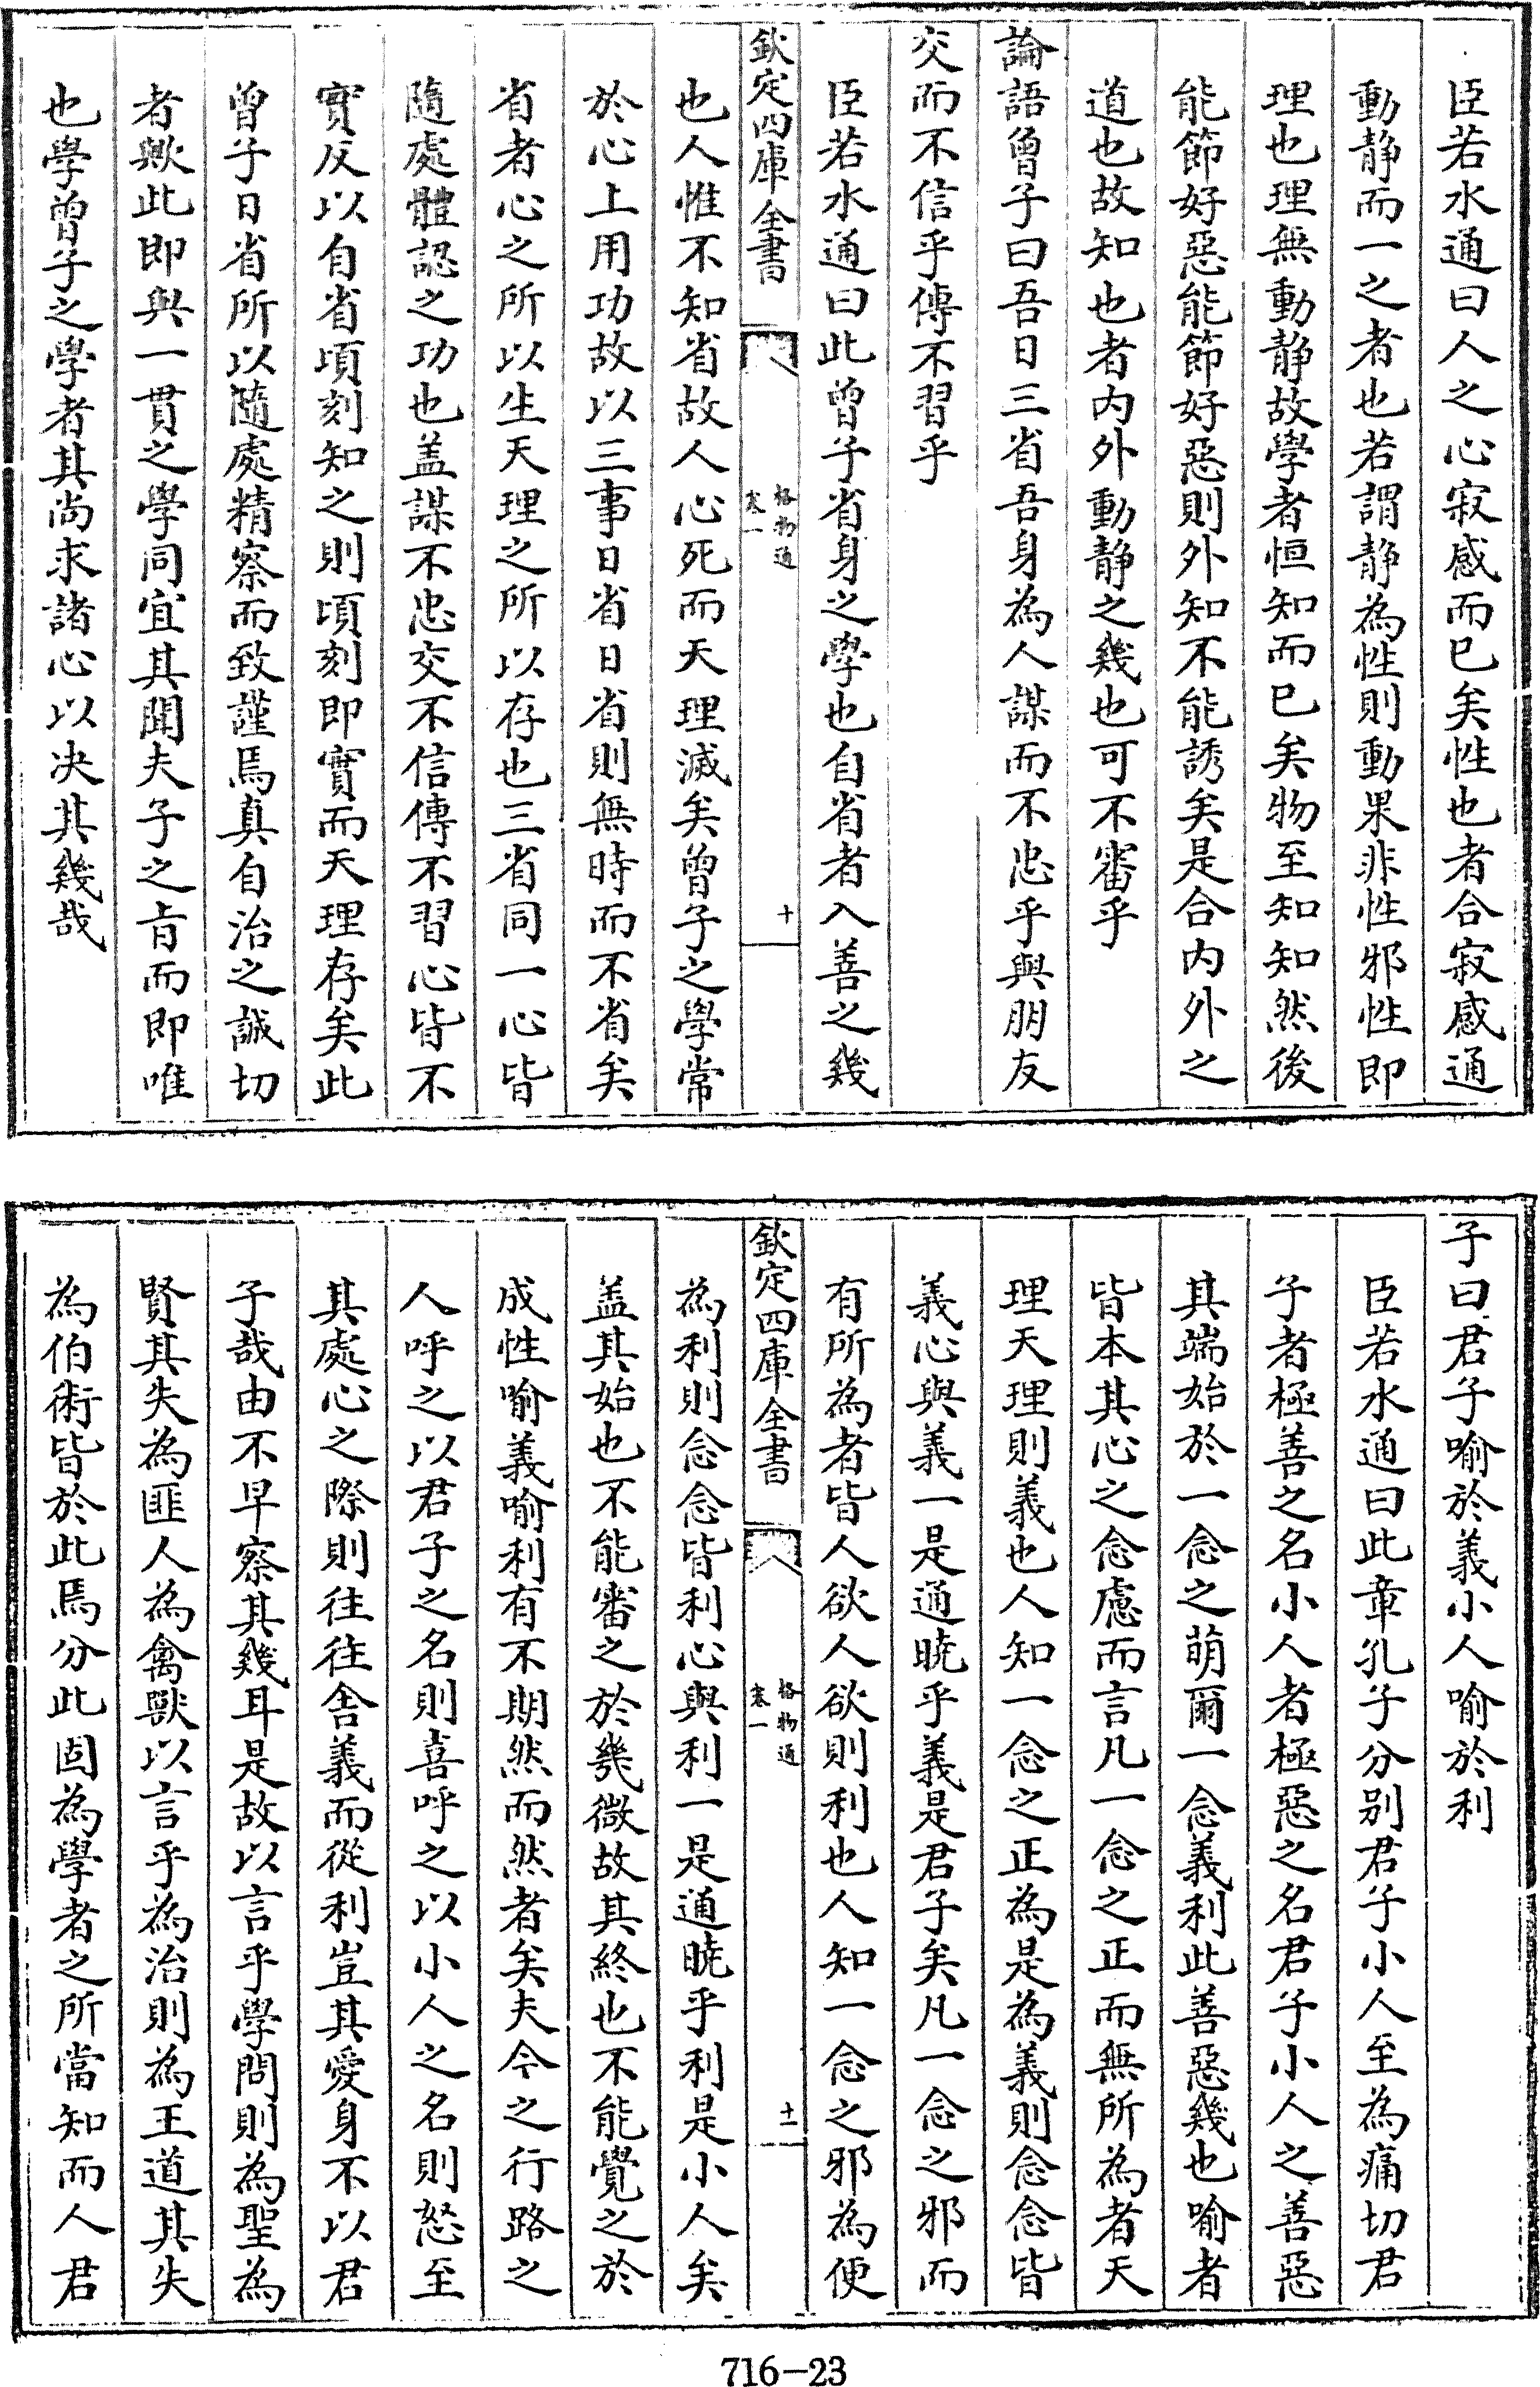 臣若水通曰人之心寂感而已矣性也者合寂感通
動静而一之者也若謂静為性則動果非性邪性即
理也理無動静故學者恒知而已矣物至知知然後
能節好惡能節好惡則外知不能誘矣是合内外之
道也故知也者内外動静之幾也可不審乎
論語曾子曰吾日三省吾身為人謀而不忠乎與朋友
交而不信乎傳不習乎
臣若水通曰此曾子省身之學也自省者入善之幾
欽定四庫全書
格物通
卷一
十
也人惟不知省故人心死而天理滅矣曾子之學常
於心上用功故以三事日省日省則無時而不省矣
省者心之所以生天理之所以存也三省同一心皆
隨處體認之功也盖謀不忠交不信傳不習心皆不
實反以自省頃刻知之則頃刻即實而天理存矣此
曾子日省所以隨處精察而致謹焉真自治之誠切
者歟此即與一貫之學同宜其聞夫子之㫖而即唯
也學曾子之學者其尚求諸心以决其幾哉
子曰君子喻於義小人喻於利
臣若水通曰此章孔子分别君子小人至為痛切君
子者極善之名小人者極惡之名君子小人之善惡
其端始於一念之萌爾一念義利此善惡幾也喻者
皆本其心之念慮而言凡一念之正而無所為者天
理天理則義也人知一念之正為是為義則念念皆
義心與義一是通曉乎義是君子矣凡一念之邪而
有所為者皆人欲人欲則利也人知一念之邪為便
欽定四庫全書
格物通
卷一
十一
為利則念念皆利心與利一是通曉乎利是小人矣
盖其始也不能審之於幾微故其終也不能覺之於
成性喻義喻利有不期然而然者矣夫今之行路之
人呼之以君子之名則喜呼之以小人之名則怒至
其處心之際則往往舍義而從利豈其愛身不以君
子哉由不早察其幾耳是故以言乎學問則為聖為
賢其失為匪人為禽獸以言乎為治則為王道其失
為伯術皆於此焉分此固為學者之所當知而人君
716-23